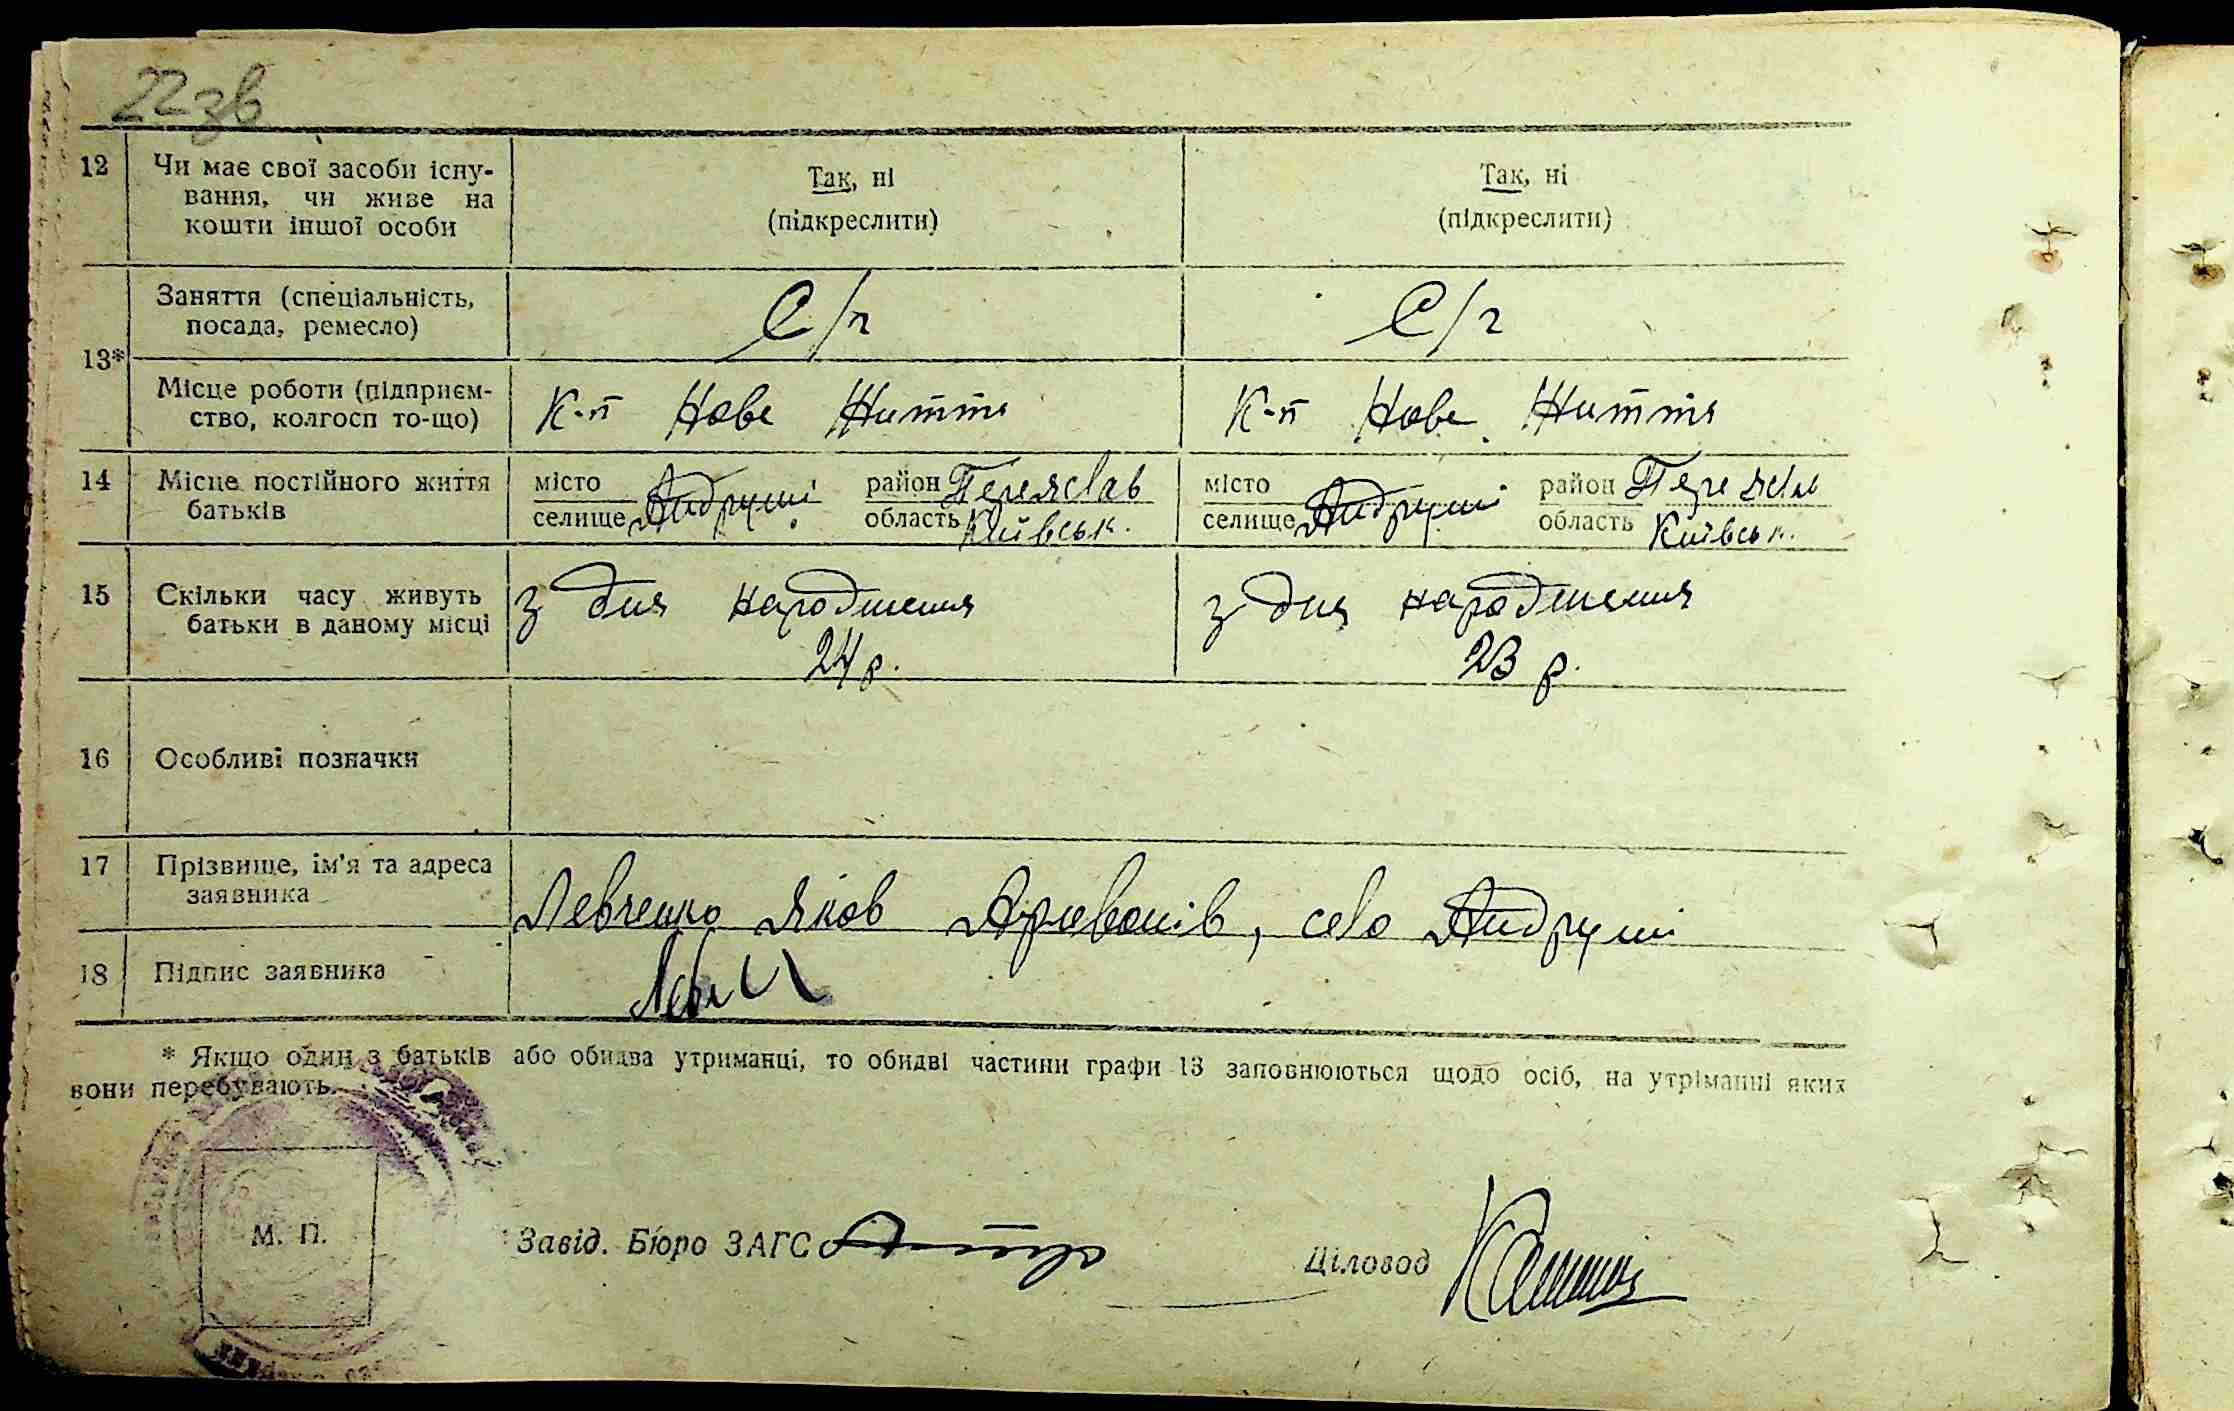 22зв
12 Чи має свої засоби існу-
вання, чи живе на
кошти іншої особи
Так, ні
(підкреслити)
Так, ні
(підкреслити)
13*
Заняття (спеціальність,
посада, ремесло)
С/г
С/г
Місце роботи (підприєм-
ство, колгосп то-що)
К-п Нове Життя
К-п Нове Життя
14 Місце постійного життя
батьків
місто
селище Андруші
район Переяслав
область Київськ.
місто
селище Андруші
район Переяслав
область Київськ.
15 Скільки часу живуть
батьки в даному місці
з дня народження
24 р.
з дня народження
23 р.
16 Особливі позначки
17 Прізвище, ім'я та адреса
заявника
Левченко Яков, село Андруші
18 Підпис заявника
* Якщо один з батьків або обидва утриманці, то обидві частини графи 13 заповнюються щодо осіб, на утріманні яких
вони перебувають.
М. П.
Завід. Бюро ЗАГС
Діловод